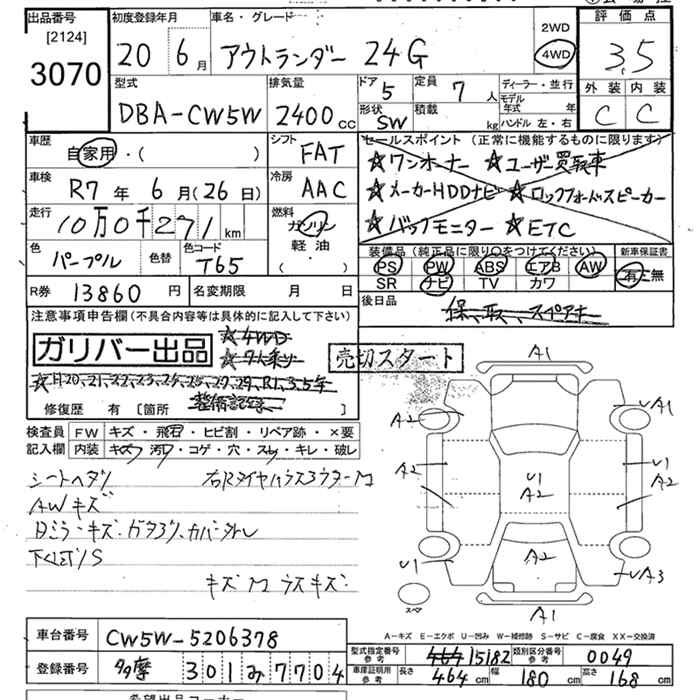 出品番号 初度登録年月 車名・グレード 2WD 評価点
[2124]
3070 20 6月 アウトランダー 24G 4WD 3.5
型式 排気量 ドア 5 定員 7人 ディーラー・並行 外装 内装
DBA-CW5W 2400cc 形状 SW 積載 kg モデル年式 年 ハンドル 左・右 C C
車歴 シフト セールスポイント (正常に機能するものに限ります)
自家用・( ) FAT ★ワンオーナー ★ユーザー買取車
車検 冷房 ★メーカーHDDナビ ★ロックフォードスピーカー
R7年 6月(26日) AAC ★バックモニター ★ETC
走行 燃料
10万0千271km ガソリン
軽油
( )
色 色替 色コード 装備品 (純正品に限り○をつけてください) 新車保証書
パープル T65 PS PW ABS エアB AW 有・無
SR ナビ TV カワ
R券 13860円 名変期限 月 日 後日品
保、取、スペアキー
注意事項申告欄(不具合内容等は具体的に記入して下さい)
ガリバー出品 ★4WD
★7人乗り 売切スタート
★H20,21,22,23,24,25,27,29,R1,3,5年
修復歴 有 [箇所 整備記録 ]
検査員 FW キズ・飛石・ヒビ割・リペア跡・×要
記入欄 内装 キズ・汚・コゲ・穴・スレ・キレ・破レ
シートヘタリ
AWキズ
下廻りS
A1
A2 A1
A2 U1 A2 U1 A2
U1 A2 A3
スペア A1
A-キズ E-エクボ U-凹み W-補修跡 S-サビ C-腐食 XX-交換済
車台番号 CW5W-5206378
型式指定番号 参考 464 15182 類別区分番号 参考 0049
登録番号 多摩 301み7704
車庫証明用 参考 長さ 464cm 幅 180cm 高さ 168cm
希望出品コーナー